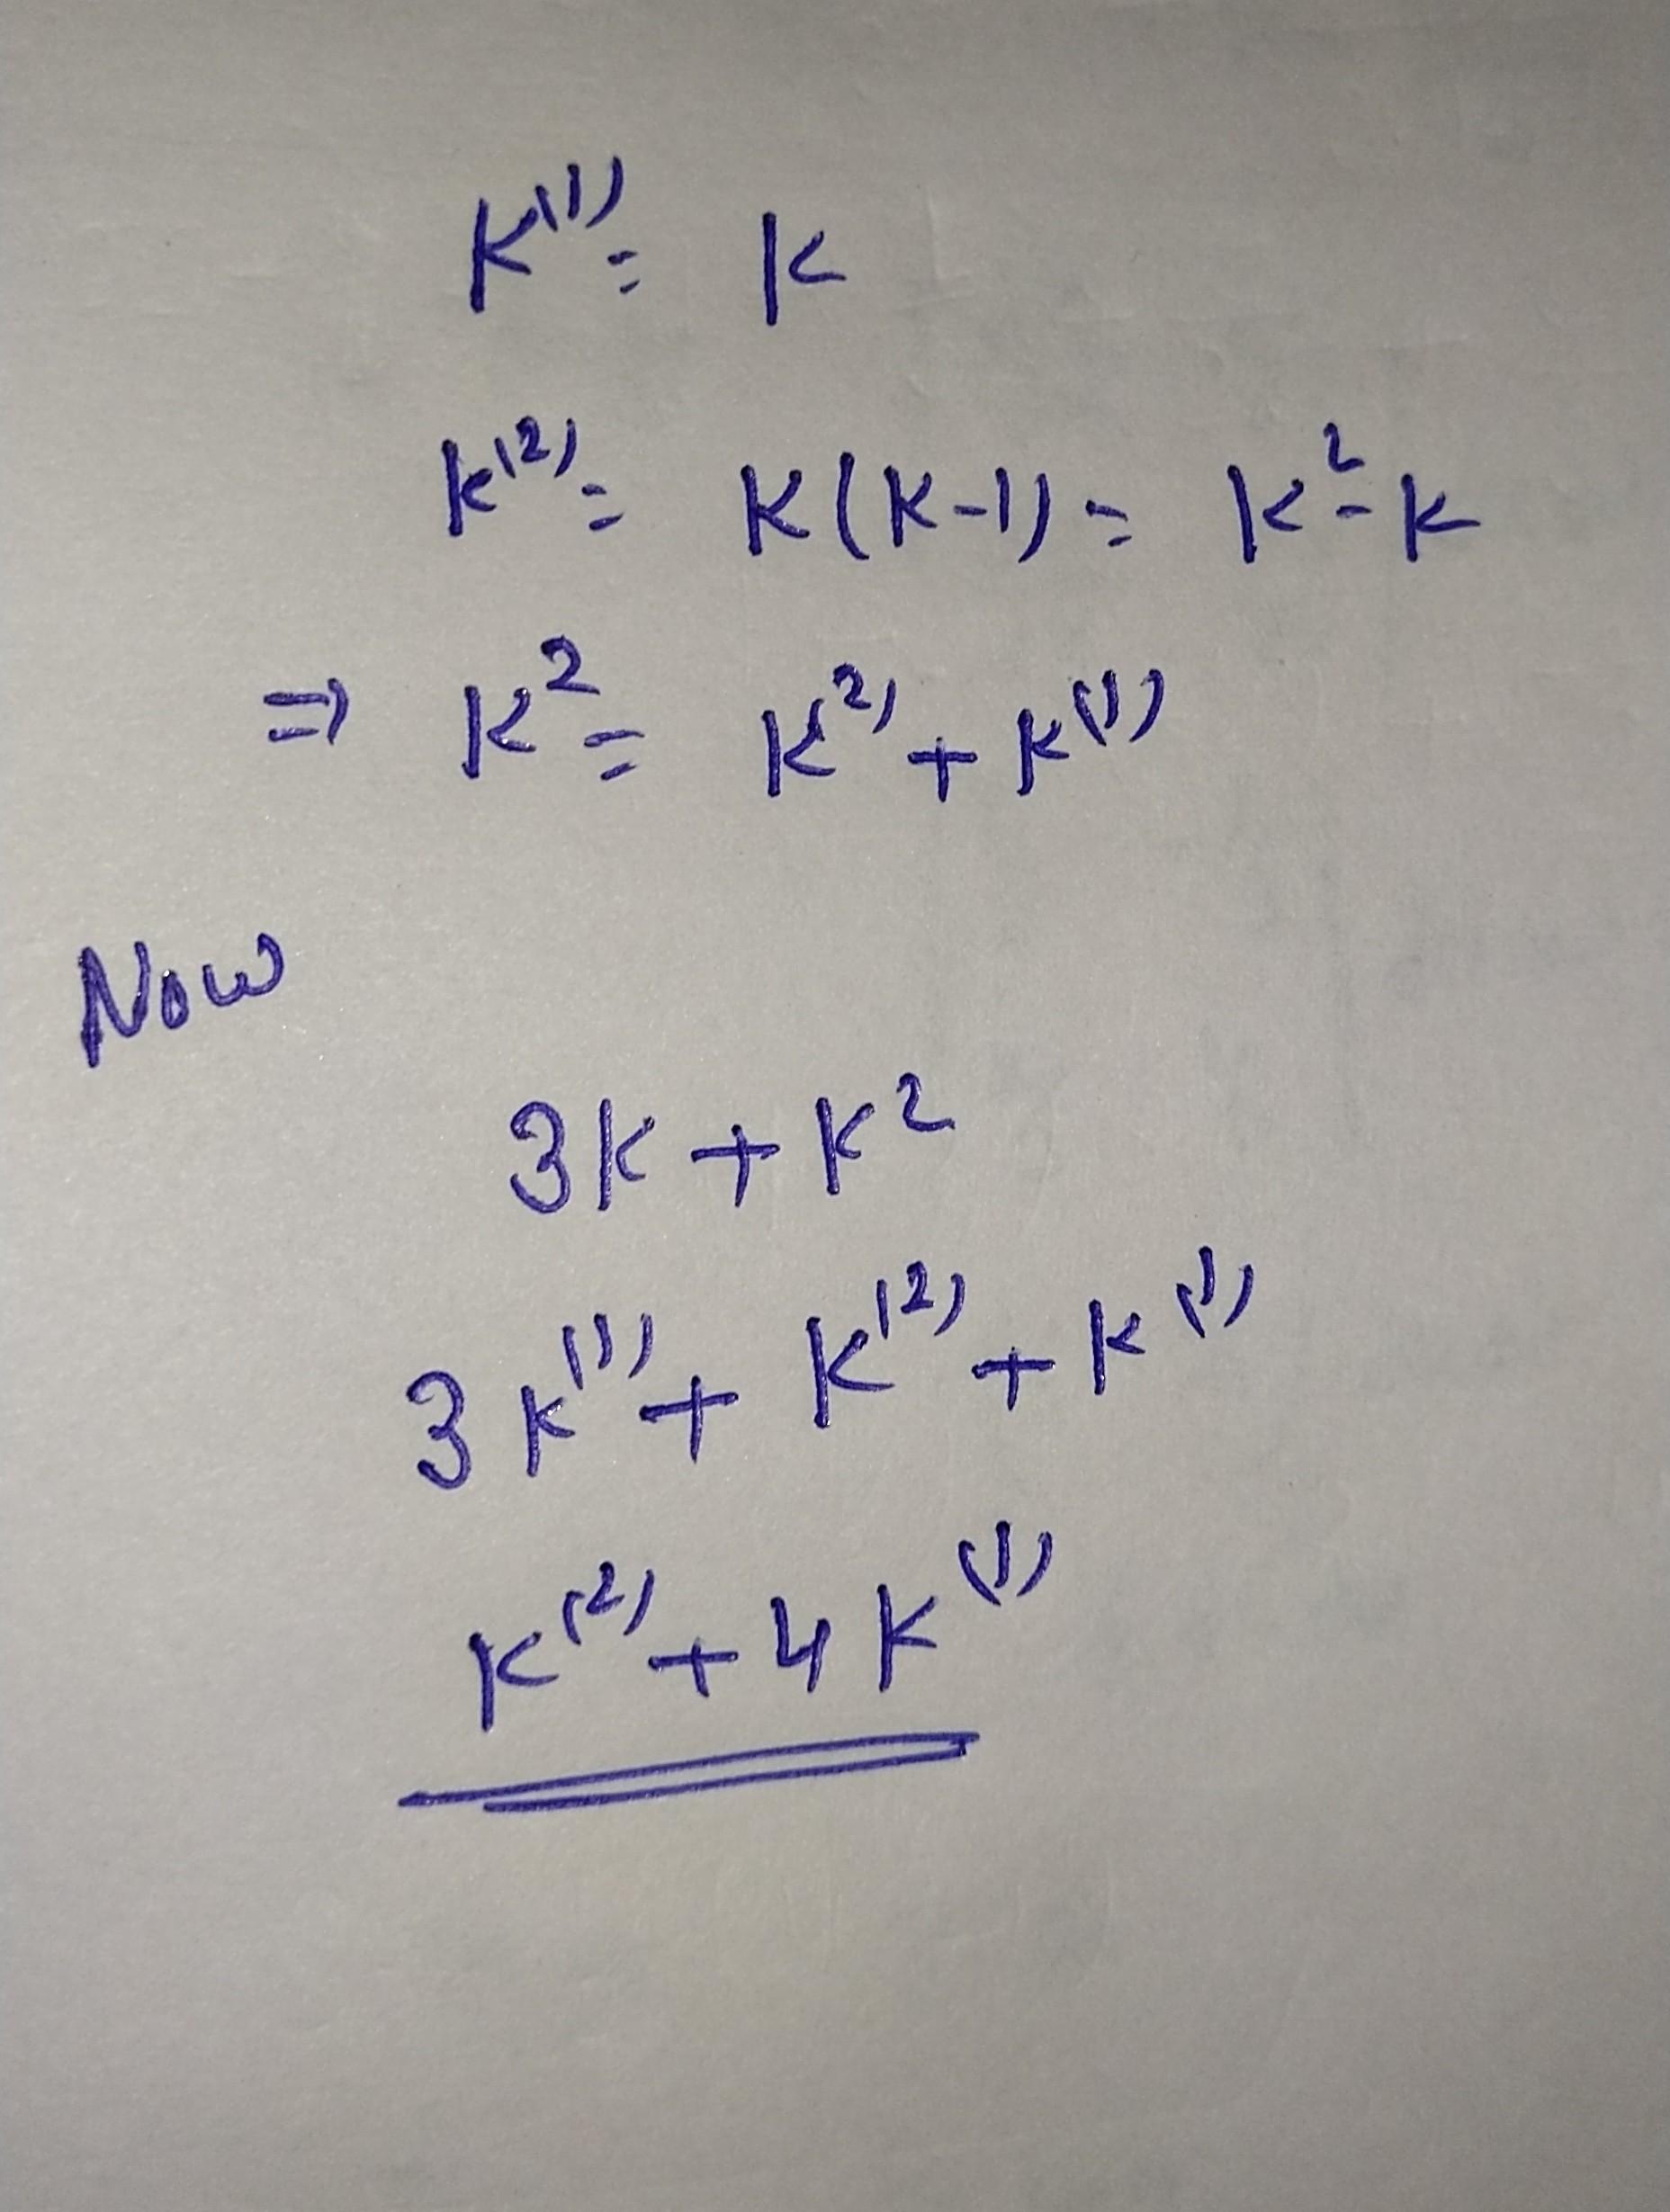 K⁽¹⁾ = K
K⁽²⁾ = K(K-1) = K² - K
⇒ K² = K²⁾ + K⁽¹⁾
Now
3K + K²
3K⁽¹⁾ + K⁽²⁾ + K⁽¹⁾
K⁽²⁾ + 4K⁽¹⁾